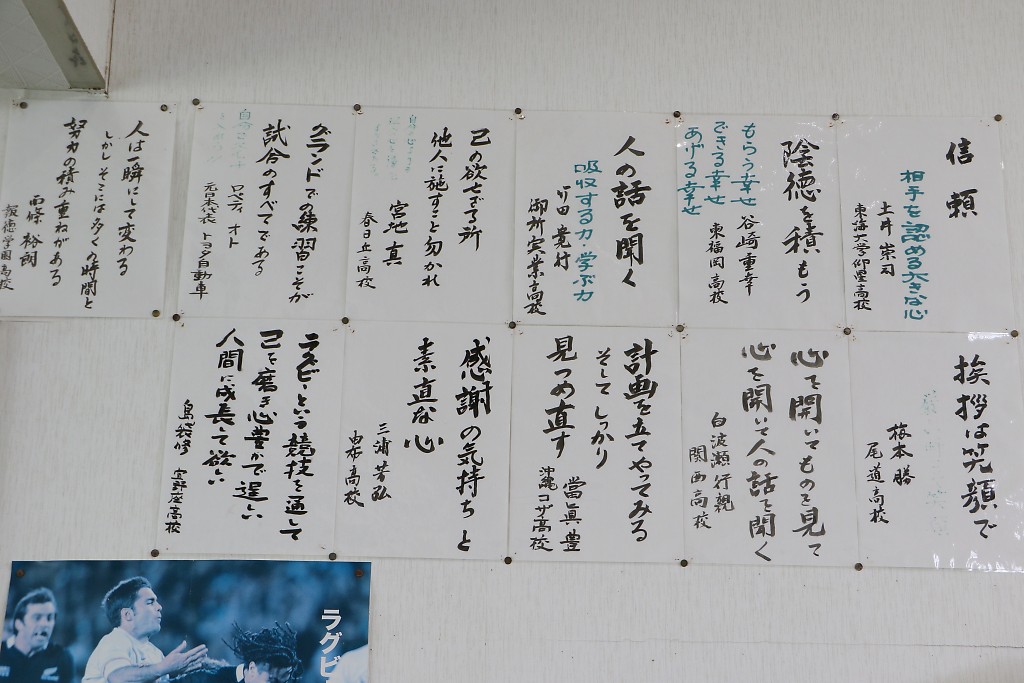 信頼
相手を認める大きな心
土井 崇司
東海大学仰星高校
陰徳を積もう
もらう幸せ
できる幸せ
あげる幸せ
谷崎重幸
東福岡高校
人の話を聞く
吸収する力・学ぶ力
竹田寛行
御所実業高校
己の欲せざる所
他人に施すこと勿かれ
宮地 真
春日丘高校
グランドでの練習こそが
試合のすべてである
ロマティ オト
元日本代表 トヨタ自動車
人は一瞬にして変わる
しかしそこには多くの時間と
努力の積み重ねがある
西條 裕朗
報徳学園高校
挨拶は笑顔で
梅本 勝
尾道高校
心を開いてものを見て
心を開いて人の話を聞く
白波瀬 行親
関西高校
計画を立てやってみる
そして しっかり
見つめ直す
當眞 豊
沖縄コザ高校
感謝の気持ちと
素直な心
三浦 芳弘
由布高校
ラグビーという競技を通して
己を磨き心豊かで逞しい
人間に成長して欲しい
島袋 修
宜野座高校
ラグビ